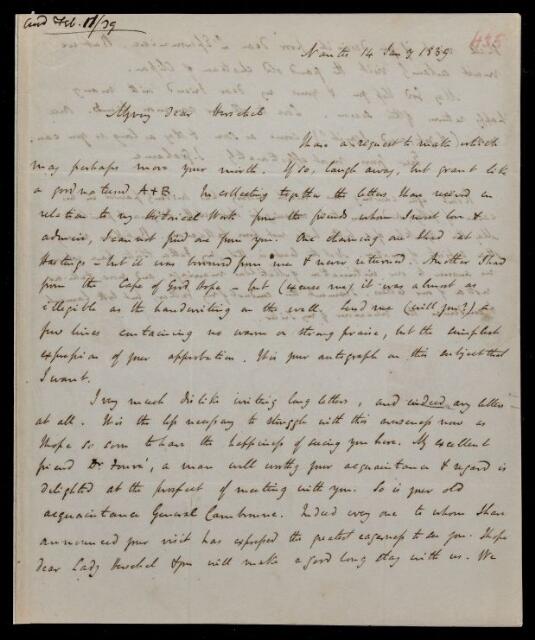 and Feb. 11/39
435
Nantes 14 Jany 1839
My very Dear Herschel
I have a request to make which
may perhaps move your mirth. If so, laugh away, but grant like
a good natured A+B. In collecting together the letters I have received in
relation to my Historical Work from the friends whom I most love &
admire, I can not find one from you. One charming one I had at
Hastings – but it was borrowed from me & never returned. Another I had
from the Cape of Good Hope – but (excuse me) it was almost as
illegible as the handwriting on the wall. Send me (will you?) a
few lines containing no warm or strong praise, but the simplest
expression of your approbation. It is your autograph on this subject that
I want.
I very much dislike writing long letters, and indeed any letters
at all. It is the less necessary to struggle with this now as
I hope so soon to have the happiness of seeing you here. My excellent
friend Dr. , a man well worthy your acquaintance & regard is
delighted at the prospect of meeting with you. So is your old
acquaintance General Cambronne. Indeed every one to whom I have
announced your visit has expressed the greatest eagerness to see you. I hope
dear Lady Herschel & you will make a good long stay with us. We